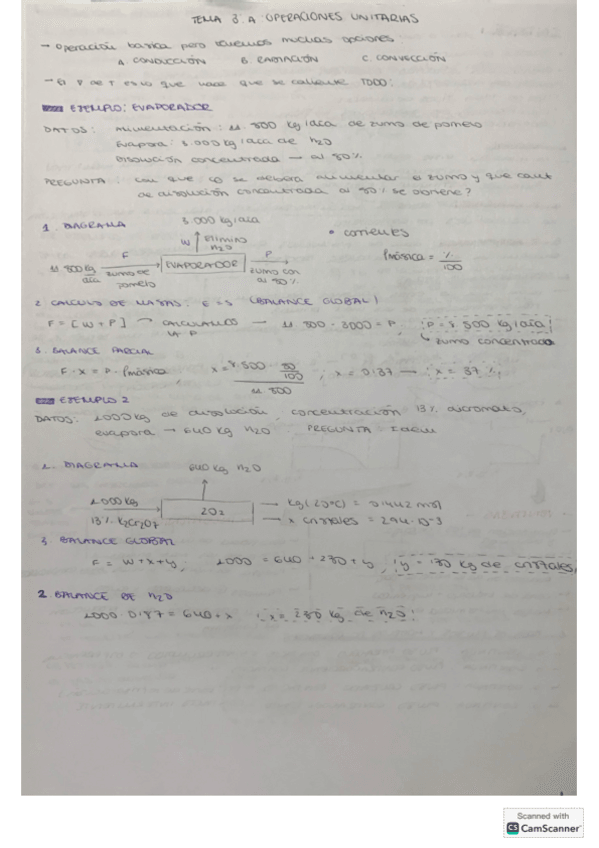 TEMA 3.A OPERACIONES UNITARIAS
→ Operación básica pero tenemos muchas opciones
A. CONDUCCIÓN B. RADIACIÓN C. CONVECCIÓN
→ El de T es lo que hace que se caliente TODO.
EJEMPLO: EVAPORADOR
DATOS: Alimentación: 11 500 kg/día de zumo de pomelo
Evapora: 3.000 kg/día de H2O
Disolución concentrada → al 50%
PREGUNTA: con que se deberá alimentar o zumo y que cant
de disolución concentrada al 50% se obtiene?
1. DIAGRAMA 3.000 kg/día
W ELIMINO H2O
* corrientes
Pmásica = %/100
11 500 kg/día F zumo de pomelo EVAPORADOR P zumo con al 50%
2. CALCULO DE MASAS: E = S (BALANCE GLOBAL)
F = [W + P] → CALCULAMOS LA P → 11.500 - 3000 = P, P = 8.500 kg/día
zumo concentrado
3. BALANCE PARCIAL
F · X = P · Pmásica x = 8.500 · 50/100 / 11 500 ; x = 0'37 → x = 37%
EJEMPLO 2
DATOS: 1000 kg de disolución, concentración 13%
evapora → 640 kg H2O PREGUNTA Idem
1. DIAGRAMA 640 kg H2O
1000 kg
13% K2Cr2O7
→ kg (20°C) = 0'442 mol
→ x cristales = 294 · 0-3
3. BALANCE GLOBAL
F = W + x + y, 1000 = 640 + 230 + y, y = 130 kg de cristales
2. BALANCE DE H2O
1000 · 0'87 = 640 + x x = 230 kg de H2O
Scanned with
CS CamScanner